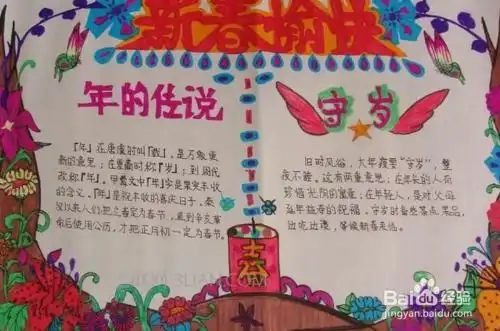 新春愉快
年的传说
「年」在唐虞时叫「载」，是万象更
新的意思；在夏商时称「岁」；到周代
改称「年」。甲骨文中「年」字是果实丰收
的含义。「年」是祝丰收的喜庆日子。秦
汉以来人们把立春定为春节，直到辛亥革
命后使用公历，才把正月初一定为春节。
守岁
旧时风俗，大年夜要"守岁"，整
夜不眠。这有两重意思；在年长的人有
珍惜光阴的寓意；在年轻人，是对父母
延年益寿的祝福。守岁时备些羔点果品，
边吃边谈，等候新春来临。
Baidu经验
jingyan.baidu.com